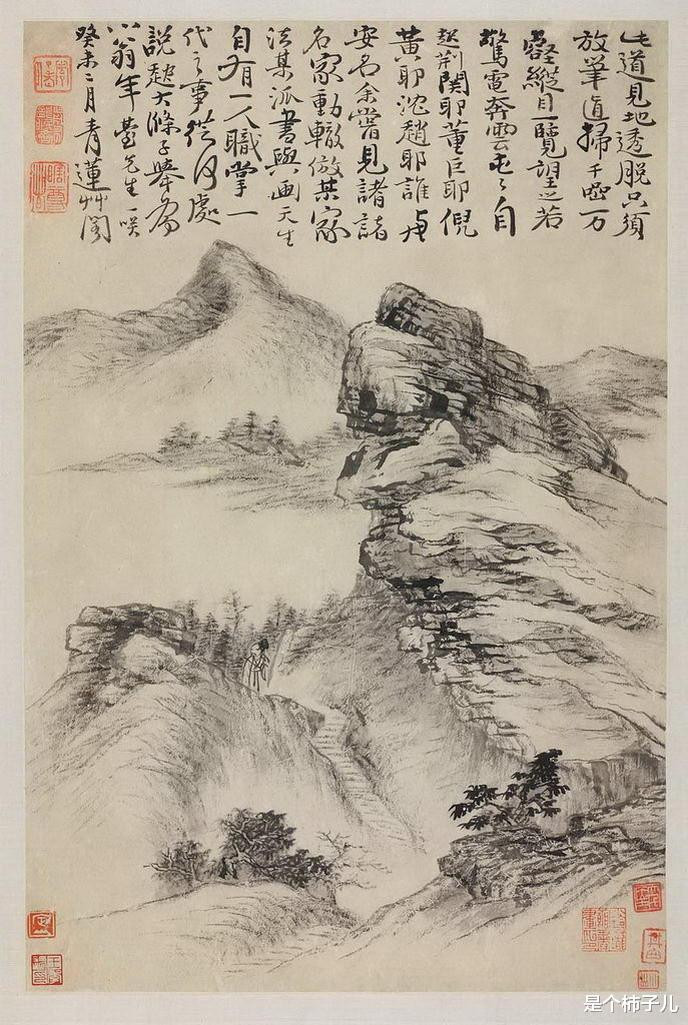 此道見地透脫只須
放筆直掃千巖万
壑縱目一覽望之若
驚電奔雲屯屯自
起荊關耶董巨耶倪
黃耶沈趙耶誰與
安名余嘗見諸諸
名家動輒倣某家
法某派書與画天生
自有一人職掌一
代之事從何處
說起大滌子舉為
翁年先生一咲
癸未二月青蓮艸閣
是个柿子儿